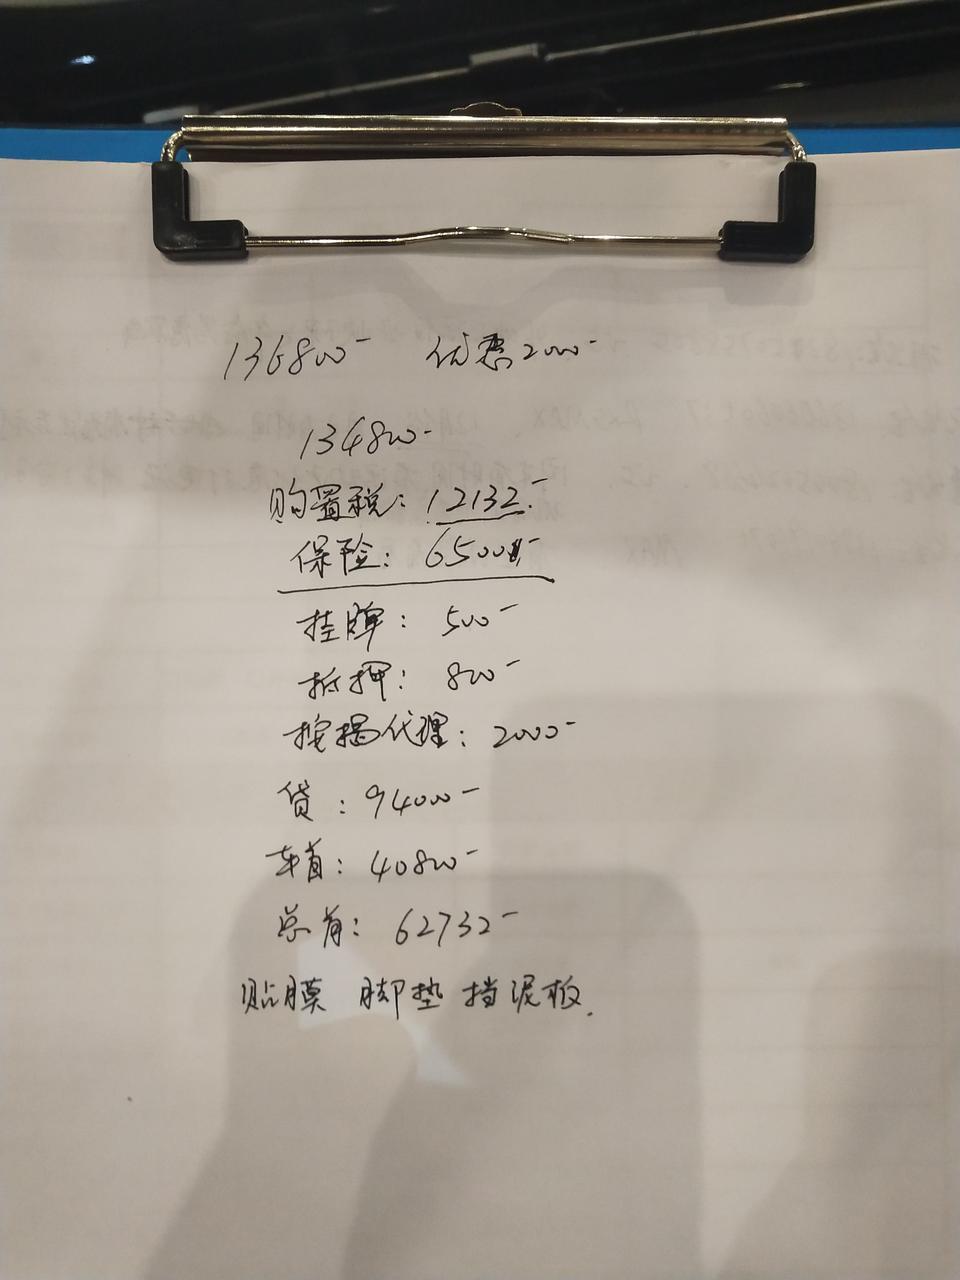 136800- 优惠2000-
134800-
购置税：12132.-
保险：6500-
挂牌：500-
抵押：800-
按揭代理：2000-
贷：94000-
车首：40800-
总首：62732-
贴膜 脚垫 挡泥板.